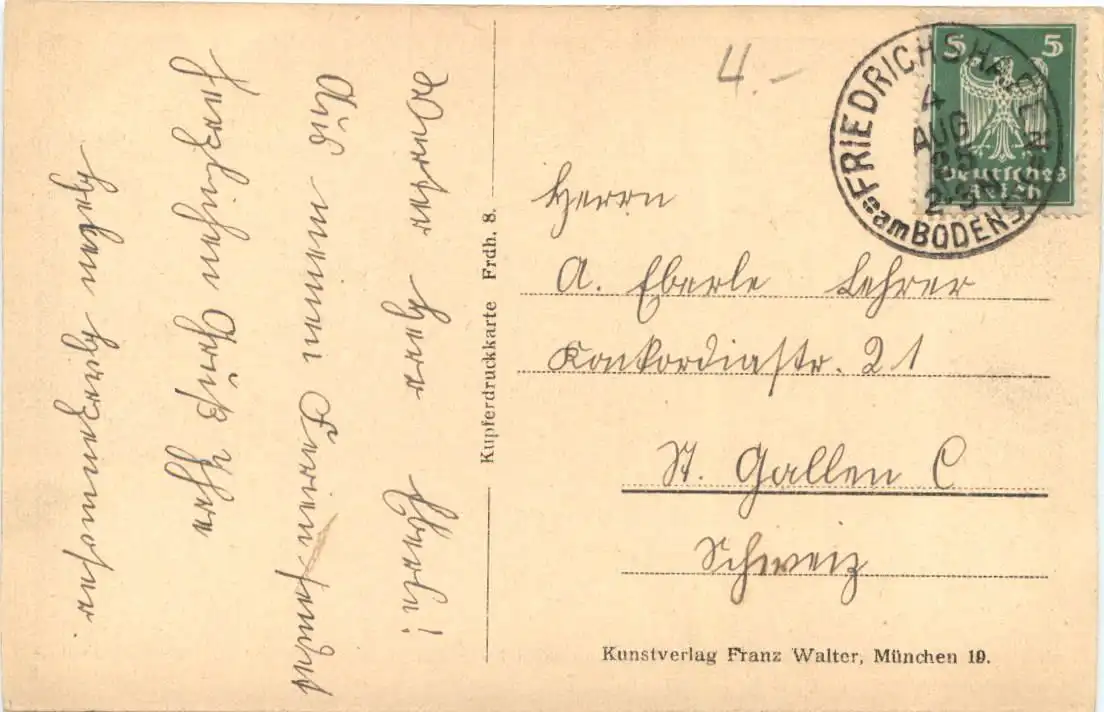 Herr Eberle!
Aus meinen Ferien sendet
herzlichen Gruß Ihre
Helen Harzenmoser.
Kupferdruckkarte Frdh. 8.
4.-
5 5
Deutsches
Reich
FRIEDRICHSHAFEN
4
AUG
25
am BODENSEE
Herrn
A. Eberle Lehrer
Konkordiastr. 21
St. Gallen C
Schweiz
Kunstverlag Franz Walter, München 19.